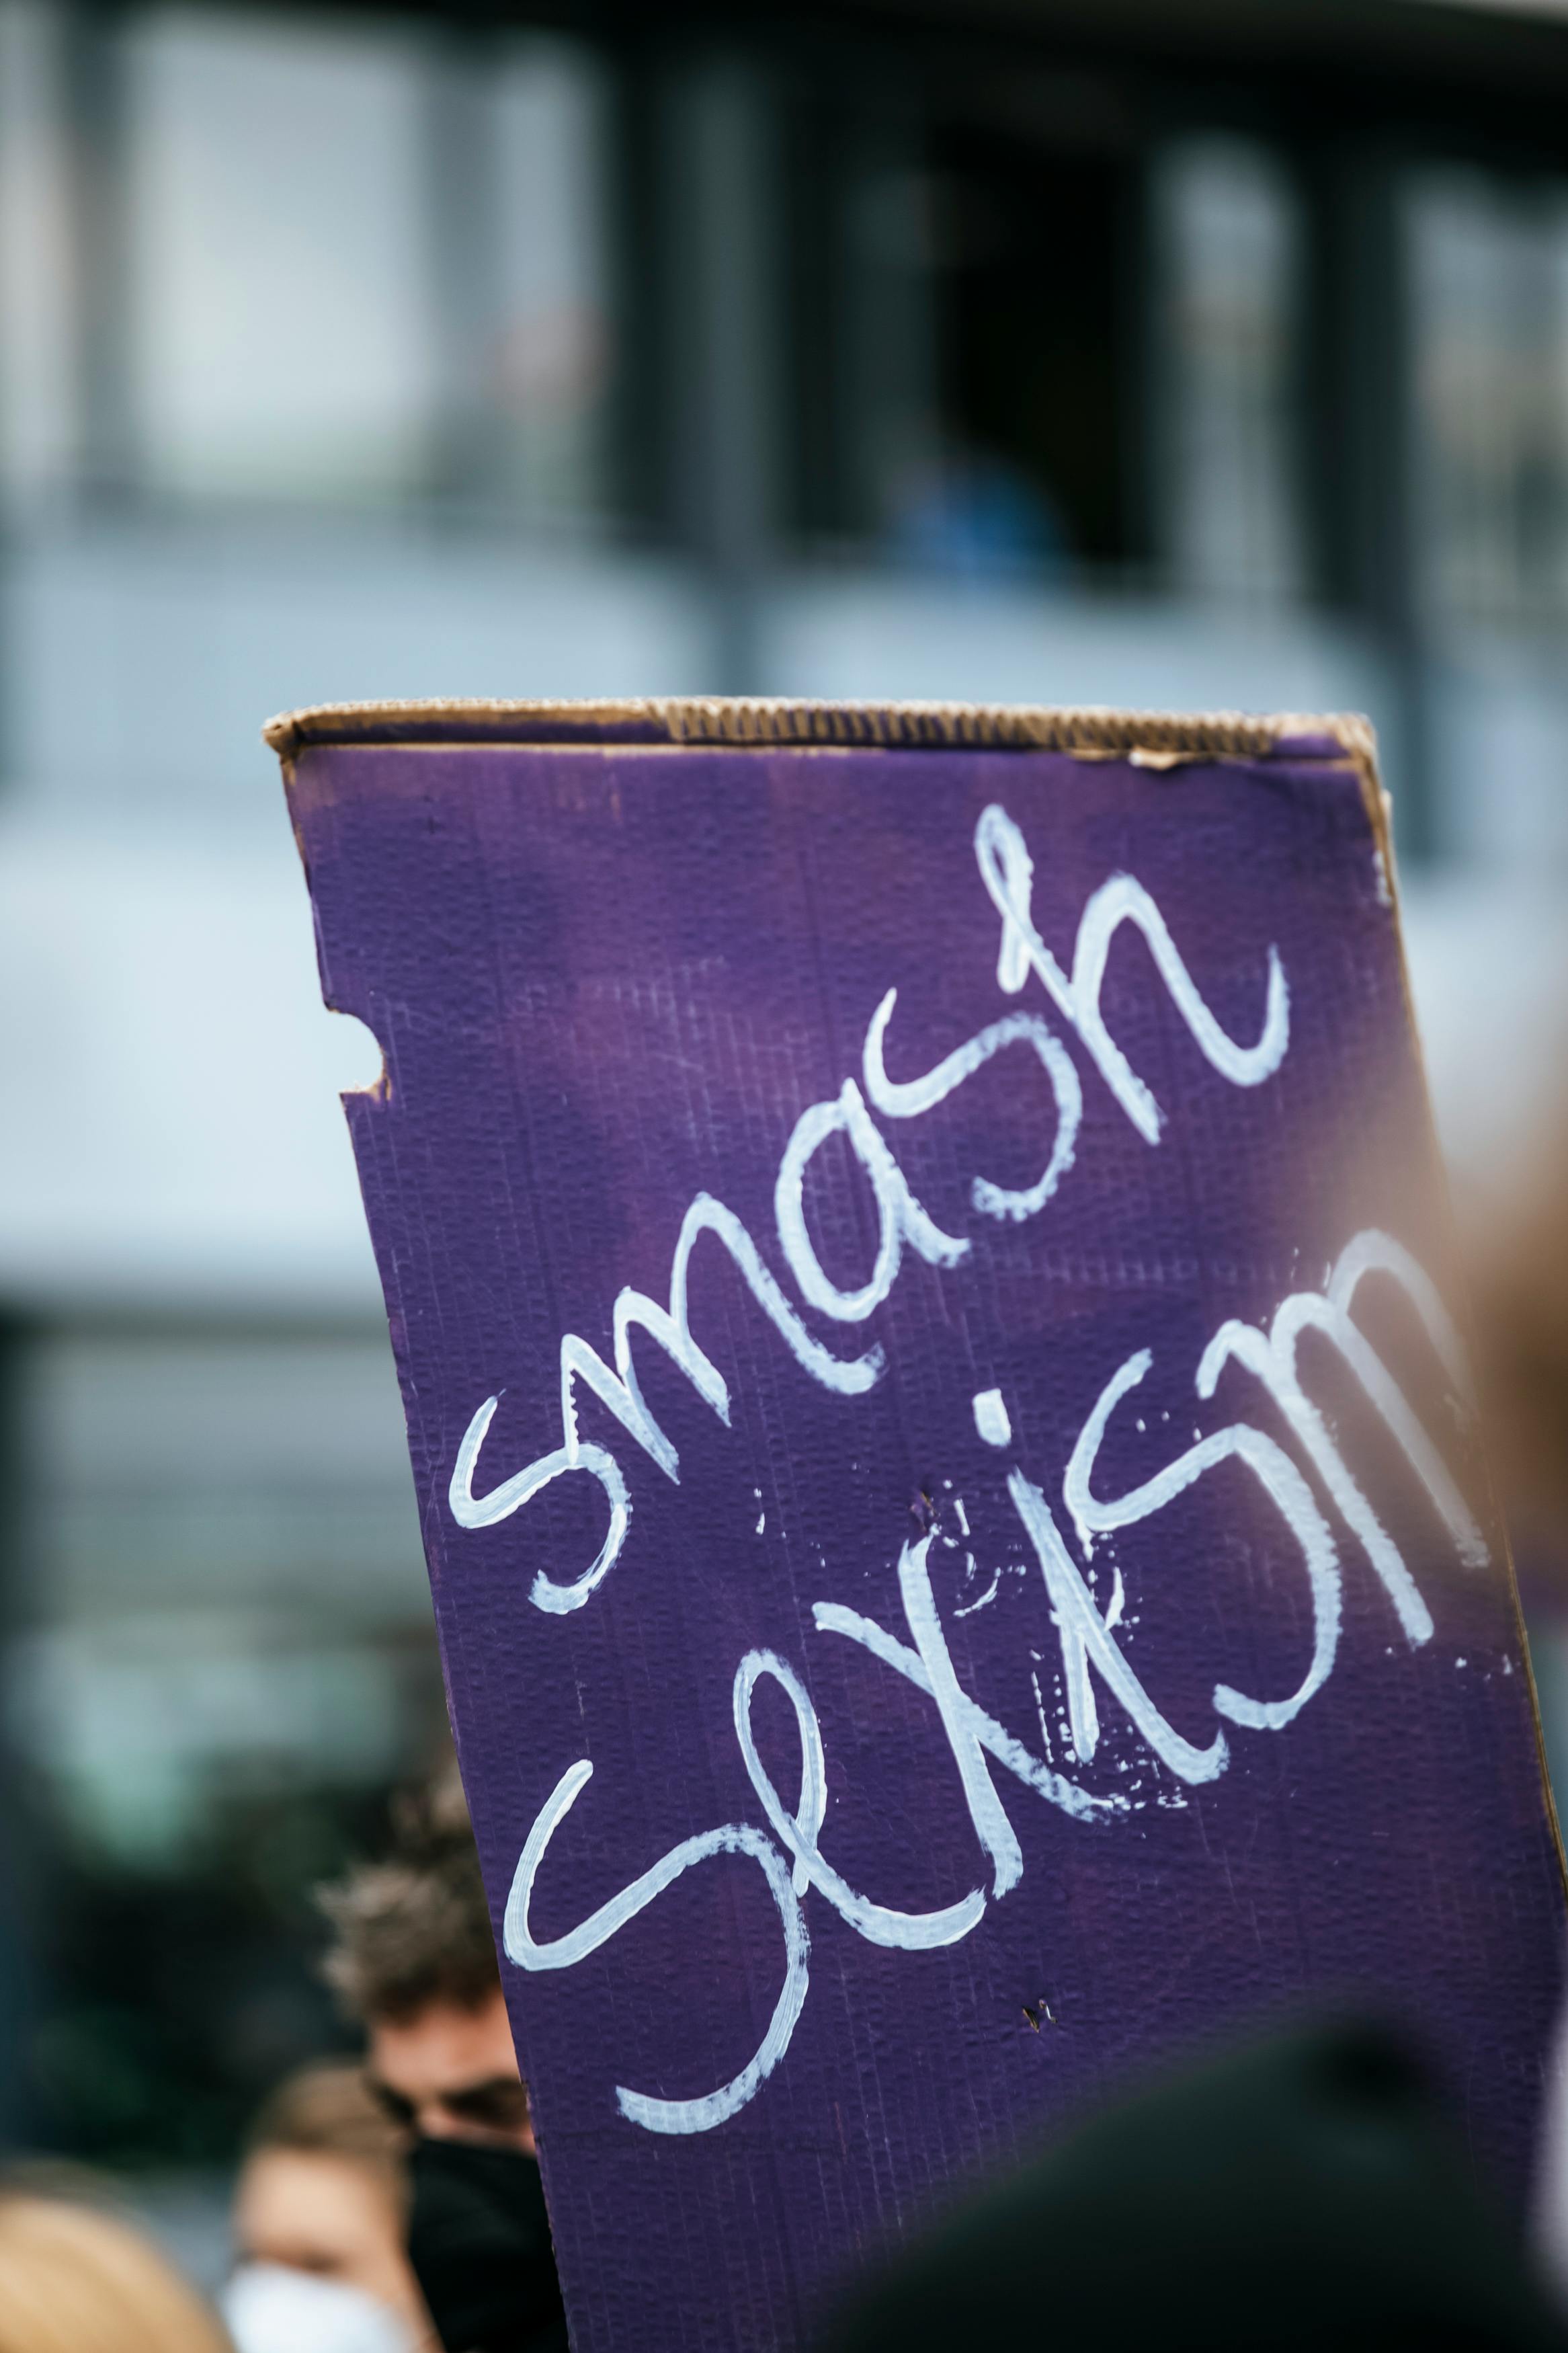 smash
Sexism